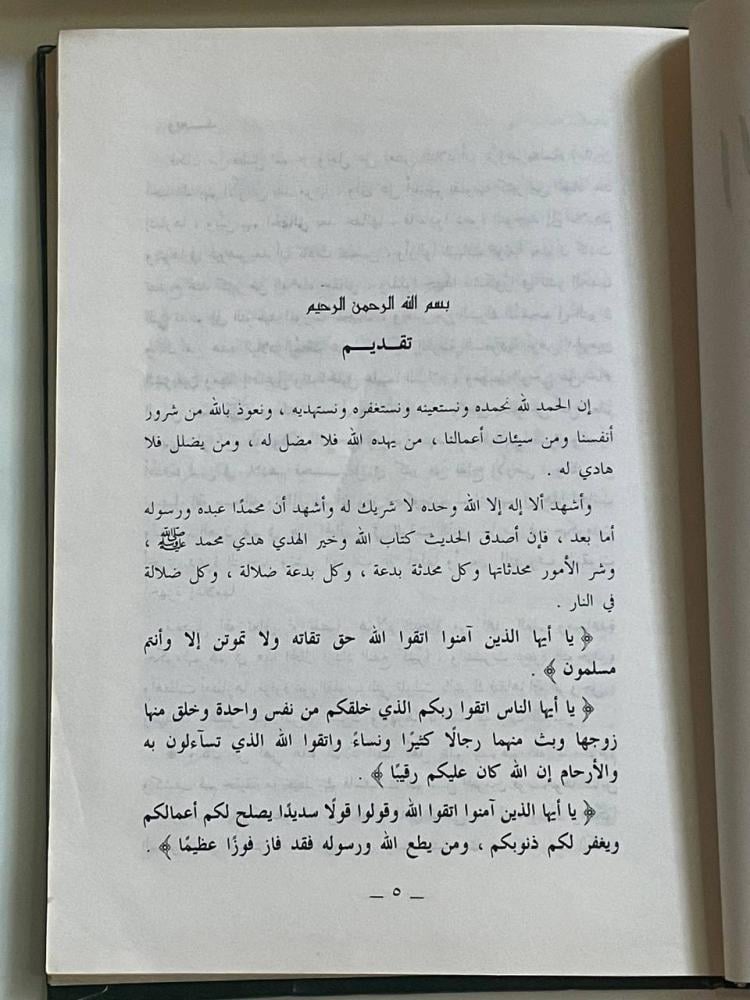 بسم الله الرحمن الرحيم
تقديم
إن الحمد لله نحمده ونستعينه ونستغفره ونستهديه ، ونعوذ بالله من شرور
أنفسنا ومن سيئات أعمالنا ، من يهده الله فلا مضل له ، ومن يضلل فلا
هادي له .
وأشهد ألا إله إلا الله وحده لا شريك له وأشهد أن محمدًا عبده ورسوله
أما بعد ، فإن أصدق الحديث كتاب الله وخير الهدي هدي محمد ﷺ ،
وشر الأمور محدثاتها وكل محدثة بدعة ، وكل بدعة ضلالة ، وكل ضلالة
في النار .
﴿ يا أيها الذين آمنوا اتقوا الله حق تقاته ولا تموتن إلا وأنتم
مسلمون ﴾ .
﴿ يا أيها الناس اتقوا ربكم الذي خلقكم من نفس واحدة وخلق منها
زوجها وبث منهما رجالًا كثيرًا ونساءً واتقوا الله الذي تسآءلون به
والأرحام إن الله كان عليكم رقيبًا ﴾ .
﴿ يا أيها الذين آمنوا اتقوا الله وقولوا قولًا سديدًا يصلح لكم أعمالكم
ويغفر لكم ذنوبكم ، ومن يطع الله ورسوله فقد فاز فوزًا عظيمًا ﴾ .
— ٥ —